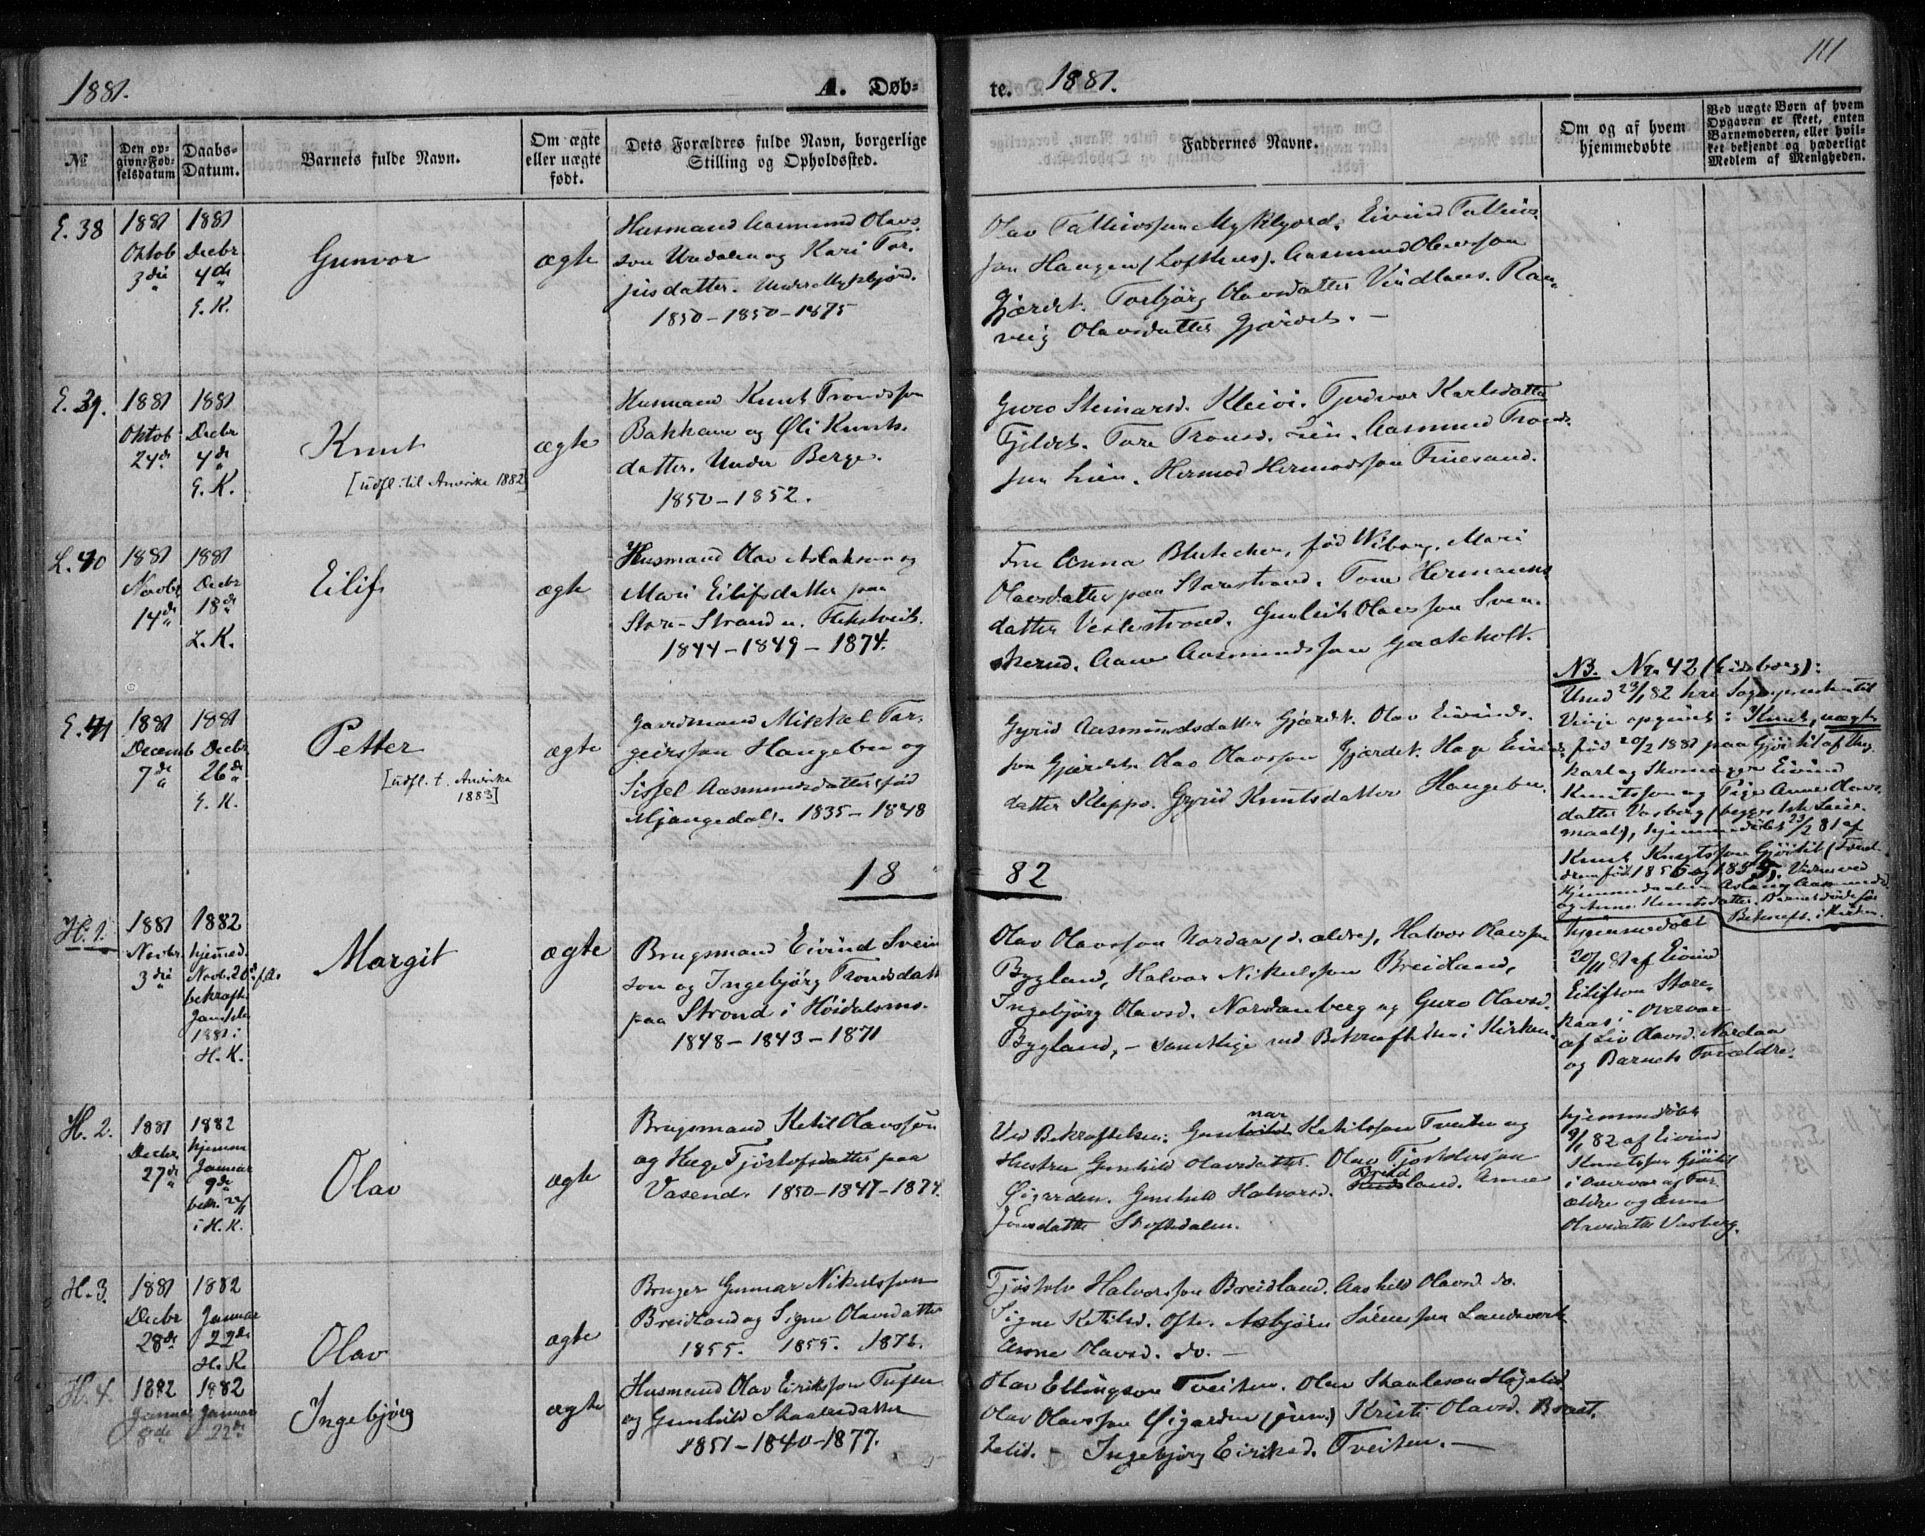 1881. A. Døb-
te. 1881. 111
№
Den op-
givne Fød-
selsdatum
Daabs-
Datum.
Barnets fulde Navn.
Om ægte
eller uægte
født.
Dets Forældres fulde Navn, borgerlige
Stilling og Opholdssted.
Faddernes Navne.
Om og af hvem
hjemmedøbte
Ved uægte Børn af hvem
Opgaven er skeet, enten
Barnemoderen, eller hvil-
ket bekjendt og hæderligt
Medlem af Menigheden.
E. 38
1881
Oktob
3die
1881
Decbr
4de
E. K.
Gunvor
ægte
Husmand Aasmund Olavs-
son Uredalen og Kari Tor-
jusdatter. Under Mykbjørd.
1850 - 1850 - 1875
Olav Tallivssøn Eivind
søn Haugen (Lofthus). Aasmund Olavssøn
Gjærdet. Torbjørg Olavsdatter Vindlaus. Ran-
veig Olavsdatter Gjærdet. -
E. 39.
1881
Oktob
24de
1881
Decbr
4de
E. K.
Knut
[udfl. til Amerika 1882]
ægte
Husmand Knut Trondssøn
Bakhaue og Øli Knuts-
datter. Under Berge.
1850 - 1852.
Guro Steinarsd. Kleivi. Karlsdatter
Fjeldet. Tore Tronsd. Lien. Aasmund Trond-
søn Lien. Hermod Hermodssøn
L. 40
1881
Novbr
14de
1881
Decbr
18de
L. K.
Eilif
ægte
Husmand Olav Aslakson og
Mari Eilifsdatter paa
Store-Strand u. Flekstveit.
1844 - 1849 - 1874.
Fru Anna født Wiborg. Mari
Olavsdatter paa Storestrand. Tone Hermans-
datter Veslestrand. Gunleik Olavssøn Sven-
skerud. Aanund Aasmundssøn Gaaskholt.
E. 41
1881
Decemb
7de
1881
Decbr
26de
E. K.
Petter
[udfl. t. Amerika
1883]
ægte
Gaardmand Mikkel Tar-
geirssøn Haugebu og
Sissel Aasmundsdatter, født
Mjaugedal. 1835 - 1848
Gyrid Aasmundsdatter Gjærdet. Olav Eivinds-
søn Gjærdet. Olav Olavssøn Gjærdet. Hæge Eivinds-
datter Kleppo. Gyrid Knutsdatter Haugebu.
NB. Nr. 42 (Eidsborg):
Vinje opgivet: Knut, uægte
født 20/2 1881 paa Gjøitil af Ung-
karl og Skomager Eivind
Knutssøn og Pige Anne Olavs-
datter Vasberg (begges 1ste Leier-
maal), hjemmedøbt 23/2 81 af
Knut Knutssøn Gjøitil
18 82
H. 1.
1881
Novbr.
3die
1882
hjemmed.
Novb. 20
bekræft.
1881 i
H. K.
Margit
ægte
Brugsmand Eivind Svein-
son og Ingebjørg Trondsdatt
paa Strond i Høidalsmo.
1848 - 1843 - 1871
Olav Olavssøn Nordaa (d. ældre), Halvor Olavssøn
Bygland, Halvor Nikulssøn Breidland,
Ingebjørg Olavsd. Nordanberg og Guro Olavsd.
Bygland, - samtlige ved Bekræftelsen i Kirken.
hjemmedøbt
20/11 81 af Eivind
Eilifson Store-
naas i Overvær
af Liv Olavsd. Nordaa
og Barnets Forældre.
H. 2.
1881
Decbr
27de
1882
hjemm
Januar
9de
bekr. 22/1
i H. K.
Olav
ægte
Brugsmand Ketil Olavssøn
og Hæge Tjøstolfsdatter paa
Vasend. 1850 - 1847 - 1874.
Ved Bekræftelsen: Gunnar Ketilssøn Tveiten og
Hustru Gunhild Olavsdatter. Olav Tjostolvssøn
Øigarden. Gunhild Halvorsd. Breidland. Anne
Jonsdatter
hjemmedøbt
9/1 82 af Eivind
Knutssøn Gjøitil
i Overvær af For-
ældre og Anne
Olavsdatter Vasberg.
H. 3.
1881
Decbr
28de
1882
Januar
22de
H. K.
Olav
ægte
Bruger Gunnar Nikulssøn
Breidland og Signe Olavsdatter
1855. 1859. 1876.
Tjøstolv Halvorssøn Breidland. Aashild Olavsd. do.
Signe Ketilsd. Ofte. Asbjørn Sørenssøn Landsverk
Anne Olavsd. do. -
H. 4.
1882
Januar
8de
1882
Januar
22de
Ingebjørg
ægte
Husmand Olav Eirikssøn Tufte
og Gunhild Skaalesdatter
1851 - 1840 - 1877.
Olav Ellingson Tveiten. Olav Skauleson Høgelid
Olav Olavssøn Øigarden (jun.) Kristi Olavsd. Bratt-
lid. - Ingebjørg Eiriksd. Tveiten. -